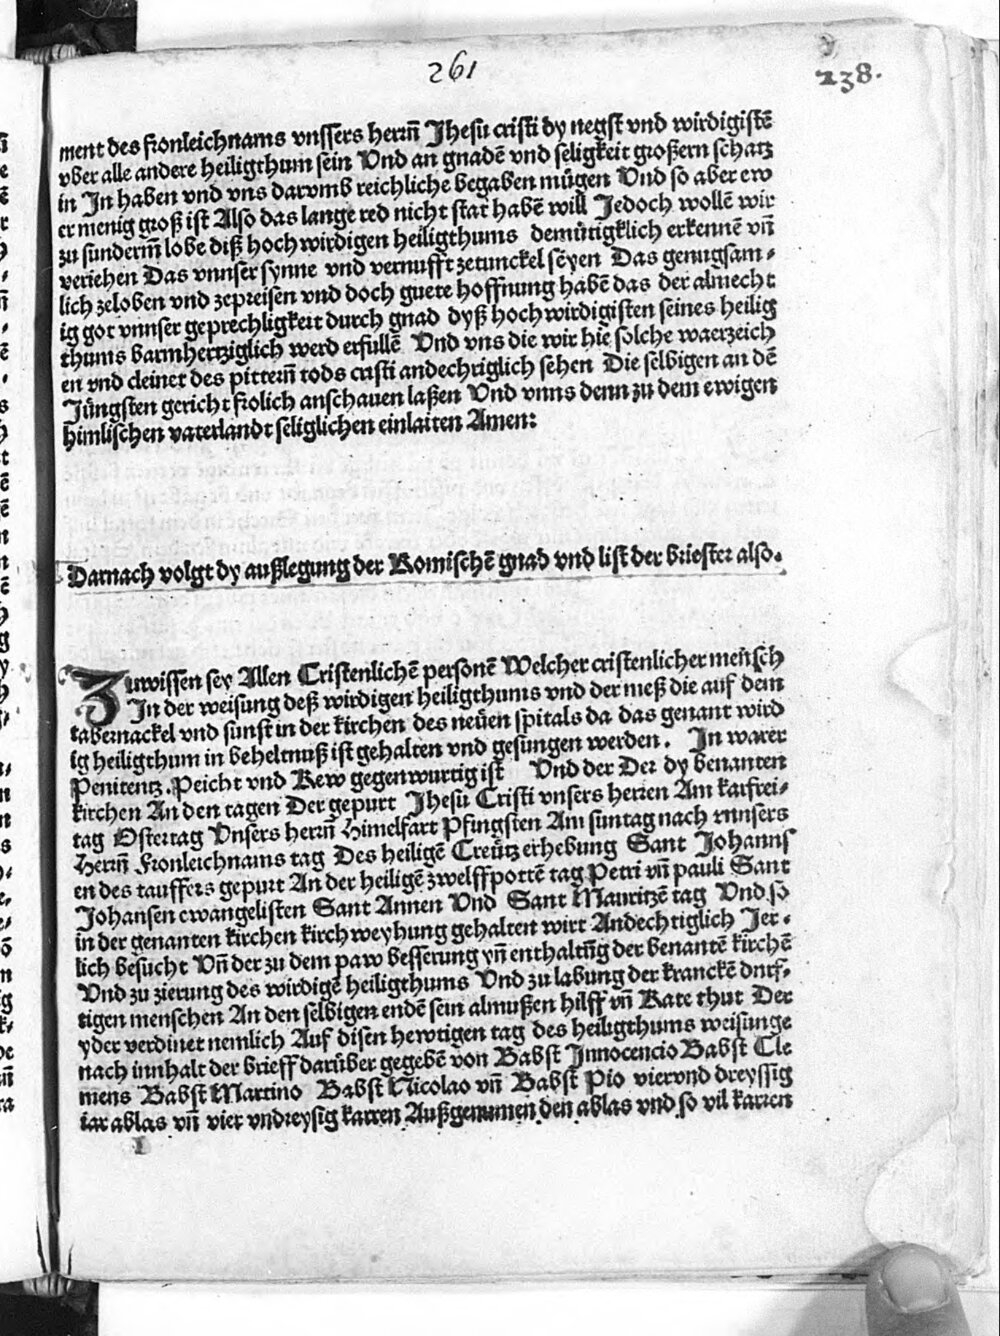 261
238.
ment des fronleichnams vnssers herrn̄ Jhesu cristi dy negst vnd wirdigistē
vber alle andere heiligthum sein Vnd an gnadē vnd seligkeit großern schatz
in Jn haben vnd vns darvmb reichliche begaben mügen Vnd so aber ew
er menig groß ist Also das lange red nicht stat habē will Jedoch wollē wir
zu sunderm̄ lobe diß hoch wirdigen heiligthums demütigklich erkennē vn̄
veriehen Das vnnser synne vnd vernufft zetunckel seyen Das genugsam-
lich zeloben vnd zepreisen vnd doch guete hoffnung habē das der almecht
ig got vnnser geprechligkeit durch gnad dyß hoch wirdigisten seines heilig
thums barmhertziglich werd erfullē Vnd vns die wir hie solche waerzeich
en vnd cleinet des pittern̄ tods cristi andechtiglich sehen Die selbigen an dē
Jüngsten gericht frolich anschauen laßen Vnd vnns denn zu dem ewigen
himlischen vaterlandt seliglichen einlaiten Amen:
Darnach volgt dy außlegung der Romischē gnad vnd list der briester also.
Zuwissen sey Allen Cristenlichē personē Welcher cristenlicher mensch
Jn der weisung deß wirdigen heiligthums vnd der meß die auf dem
tabernackel vnd sunst in der kirchen des neüen spitals da das genant wird
ig heiligthum in beheltnuß ist gehalten vnd gesungen werden. Jn warer
Penitentz. Peicht vnd Rew gegenwurtig ist Vnd der Der dy benanten
kirchen An den tagen Der gepurt Jhesu Cristi vnsers herren Am karfrei-
tag Ostertag Vnsers herrn̄ Himelfart Pfingsten Am suntag nach vnnsers
Herrn̄ Fronleichnams tag Des heiligē Creütz erhebung Sant Johanns
en des tauffers gepurt An der heiligē zwelffpottē tag Petri vn̄ pauli Sant
Johansen ewangelisten Sant Annen Vnd Sant Mauritzē tag Vnd so
in der genanten kirchen kirchweyhung gehalten wirt Andechtiglich Jer-
lich besucht Vn̄ der zu dem paw besserung vn̄ enthaltūg der benantē kirchē
Vnd zu zierung des wirdigē heiligthums Vnd zu labung der kranckē durf-
tigen menschen An den selbigen endē sein almußen hilff vn̄ Rate thut Der
yder verdinet nemlich Auf disen hewtigen tag des heiligthums weisunge
nach innhalt der brieff darüber gegebē von Babst Jnnocencio Babst Cle
mens Babst Martino Babst Nicolao vn̄ Babst Pio viervnd dreyssig
iar ablas vn̄ vier vndreysig karren Außgenumen den ablas vnd so vil karren